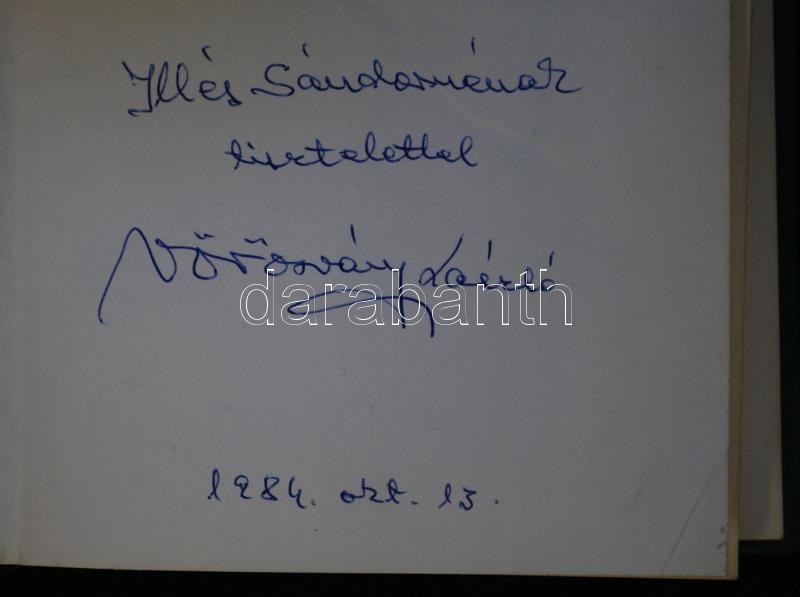 Illés Sándornénak
tisztelettel
Vörösváry László
darabanth
1984. okt. 13.